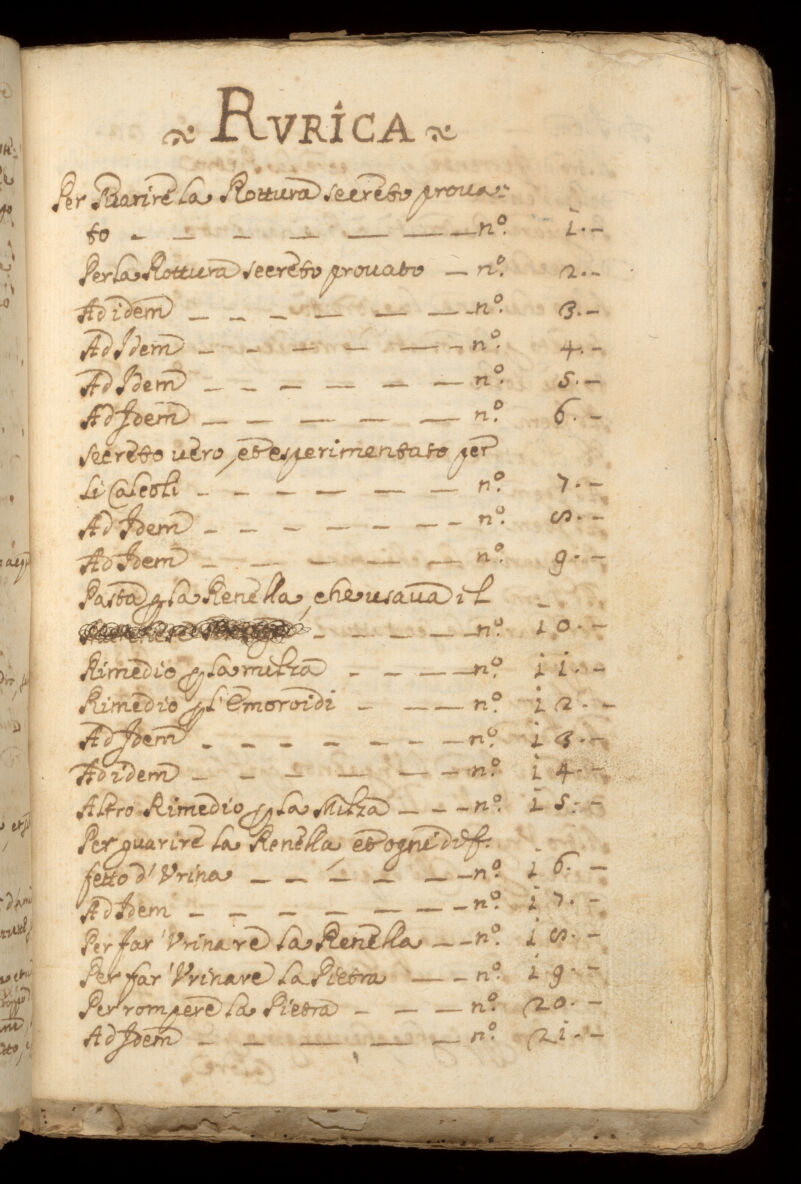 RVRICA
Per Guarire la Rottura secreto proua-
to - - - - - - - nº. 1.-
Per la Rottura secreto prouato - nº. 2.-
Ad idem - - - - - - nº. 3.-
Ad Idem - - - - - - nº. 4.-
Ad Idem - - - - - - nº. 5.-
Ad Idem - - - - - - nº. 6.-
Secreto uero, et esperimentato per
li Calcoli - - - - - - nº. 7.-
Ad Idem - - - - - - nº. 8.-
Ad Idem - - - - - - nº. 9.-
Pasta p la Renella, che usaua il
- - - - - nº. 10.-
Rimedio p la milza - - - nº. 11.-
Rimedio p l'Emoroidi - - - nº. 12.-
Ad Idem - - - - - - - nº. 13.-
Ad idem - - - - - - nº. 14.-
Altro Rimedio p la Milza - - - nº. 15.-
Per guarire la Renella, et ogni dif-
fetto d'Vrina - - - - - - nº. 16.-
Ad Idem - - - - - - - nº. 17.-
Per far' Vrinare la Renella - - nº. 18.-
Per far' Vrinare la Pietra - - nº. 19.-
Per rompere la Pietra - - - nº. 20.-
Ad Idem - - - - - - nº. 21.-